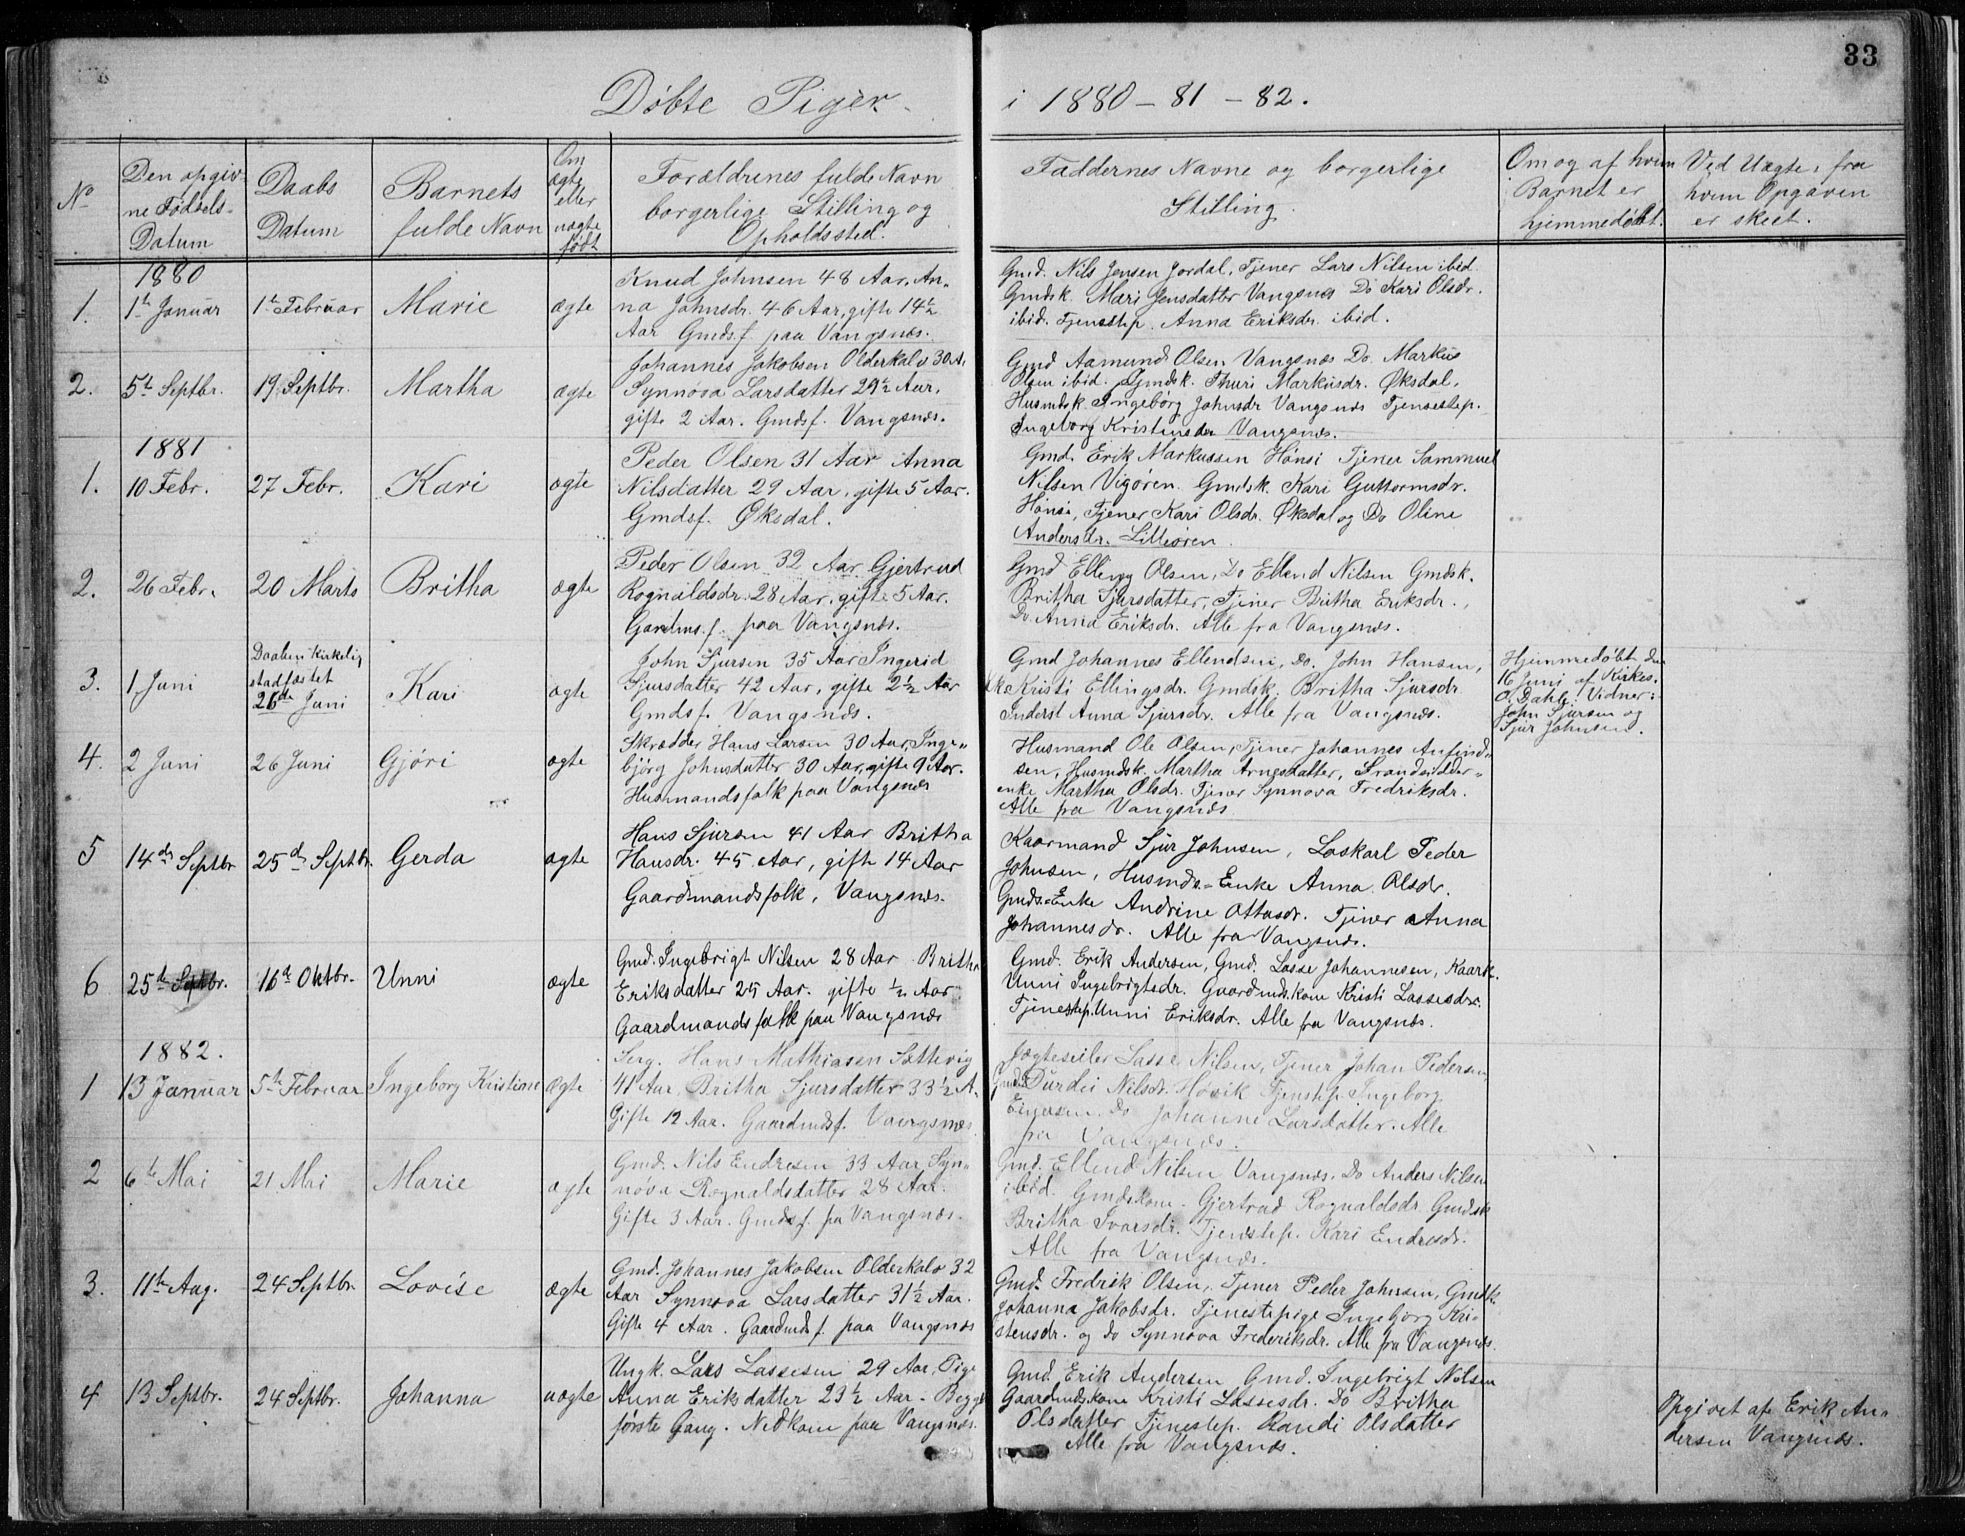 33
Døbte Piger i 1880-81-82.
No
Den opgiv-
ne Fødsels-
Datum
Daabs
Datum
Barnets
fulde Navn
Om
ægte
eller
uægte
født
Forældrenes fulde Navn
borgerlige Stilling og
Opholdssted.
Faddernes Navne og borgerlige
Stilling.
Om og af hvem
Barnet er
hjemmedøbt.
Ved Uægte, fra
hvem Opgaven
er skeet.
1880
1. 1ste Januar 1ste Februar Marie ægte
Knud Johnsen 48 Aar, An-
na Johnsdr. 46 Aar, gifte 14½
Aar Gmdsf. paa Vangsnæs.
Gmd. Nils Jensen Jordal, Tjener Lars Nilsen ibid.
Gmdsk. Mari Jensdatter Vangsnes Do Kari Olsdr.
ibid. Tjenestep. Anna Eriksdr. ibid.
2. 5te Septbr. 19 Septbr. Martha ægte
Johannes Jakobsen Olderkalv 30 A.
Synnøva Larsdatter 29½ Aar.
gifte 2 Aar. Gmdsf. Vangsnæs.
Gmd Aamund Olsen Vangsnæs Do. Markus
Olsen ibid. Gmdsk. Thuri Markusdr. Øksdal,
Husmdsk. Ingebørg Johnsdr Vangsnæs Tjenestep.
Ingeborg Kristensdr Vangsnæs.
1881
1. 10 Febr. 27 Febr. Kari ægte
Peder Olsen 31 Aar Anna
Nilsdatter 29 Aar, gifte 5 Aar.
Gmdsf. Øksdal.
Gmd. Erik Markussen Hønsi Tjener Sammuel
Nilsen Vigøren. Gmdsk. Kari Guttormsdr.
Hønsi, Tjener Kari Olsdr. Øksdal og Do Oline
Andersdr. Litleøren.
2. 26 Febr. 20 Marts Britha ægte
Peder Olsen 32 Aar Gjertrud
Rognaldsdr. 28 Aar, gifte 5 Aar.
Gardms.f. paa Vangsnæs.
Gmd Elling Olsen, Do Ellend Nilsen Gmdsk.
Britha Sjursdatter, Tjener Britha Eriksdr.,
Do. Anna Eriksdr. Alle fra Vangsnæs.
3. 1 Juni
Daaben kirkelig
stadfæstet
26de Juni
Kari ægte
John Sjursen 35 Aar Ingerid
Sjursdatter 42 Aar, gifte 2½ Aar
Gmdsf. Vangsnæs.
Gmd Johannes Ellendsen, Do. John Hansen,
Kristi Ellingsdr. Gmdsk. Britha Sjursdr
Inderst Anna Sjursdr. Alle fra Vangsnæs.
Hjemmedøbt den
16 Juni af Kirkes.
O. Dahle. Vidner:
John Sjursen og
Sjur Johnsen.
4. 2 Juni 26 Juni Gjøri ægte
Skrædder Hans Larsen 30 Aar, Inge-
bjørg Johnsdatter 30 Aar, gifte 9 Aar.
Husmandsfolk paa Vangsnæs
Husmand Ole Olsen, Tjener Johannes Anfind-
sen, Husmdsk. Martha Arnesdatter, Strandsidder-
enke Martha Olsdr. Tjener Synnøva Fredriksdr.
Alle fra Vangsnæs
5 14de Septbr 25de Septbr. Gerda ægte
Hans Sjursen 41 Aar Britha
Hansdr. 45 Aar, gifte 14 Aar
Gaardmandsfolk, Vangsnæs.
Kaarmand Sjur Johnsen, Løskarl Peder
Johnsen, Husmds-Enke Anna Olsdr.
Gmds-Enke Andrine Ottosdr. Tjener Anna
Johannesdr. Alle fra Vangsnæs.
6 25de Septbr. 16de Oktbr. Unni ægte
Gmd. Ingebrigt Nilsen 28 Aar Britha
Eriksdatter 25 Aar. gifte ½ Aar
Gaardmandsfolk paa Vangsnæs
Gmd. Erik Andersen, Gmd. Lasse Johannesen, Kaark.
Unni Ingebrigtsdr. Gaardmds.kone Kristi Lassesdr.
Tjenestep. Unni Eriksdr. Alle fra Vangsnæs.
1882.
1 13 Januar 5te Februar Ingeborg Kristiane ægte
Serg. Hans Mathiasen Sættevig
41 Aar, Britha Sjursdatter 33½ A.
Gifte 12 Aar. Gaardmdsf. Vangsnæs
Jægteseiler Lasse Nilsen, Tjener Johan Pedersen,
Gmdsk Durdei Nilsdr. Høvik Tjenstep. Ingeborg
Do Johanne Larsdatter. Alle
fra Vangsnæs.
2 6te Mai 21 Mai Marie ægte
Gmd. Nils Endresen 33 Aar, Syn-
nøva Rognaldsdatter 28 Aar.
Gifte 3 Aar. Gmdsf. pa Vangsnæs.
Gmd. Ellend Nilsen Vangsnæs. Do Anders Nilsen
ibid. Gmdskone. Gjertrud Rognaldsdr. Gmdsk
Britha Ivarsdr. Tjenstep. Kari Endresdr.
Alle fra Vangsnæs.
3. 11te Aug. 24 Septbr. Lovise ægte
Gmd. Johannes Jakobsen Olderkalv 32
Aar Synnøva Larsdatter 31½ Aar.
Gifte 4 Aar. Gaardmdsf. paa Vangsnæs
Gmd. Fredrik Olsen, Tjener Peder Johnsen, Gmdk.
Johanna Jakobsdr. Tjenestepige Ingebjørg Kri-
stensdr. og do Synnøva Frederiksdr. Alle fra Vangsnæs.
4 13 Septbr. 24 Septbr. Johanna uægte
Ungk. Lars Lassesen 29 Aar, Pige
Anna Eriksdatter 23½ Aar - Begge
første Gang. Nedkom paa Vangsnæs.
Gmd Erik Andersen Gmd. Ingebrigt Nilsen
Gaardmdskone Kristi Lassesdr. Do Britha
Olsdatter Tjenestep. Randi Olsdatter
Alle fra Vangsnæs.
Opgivet af Erik An-
dersen Vangsnæs.